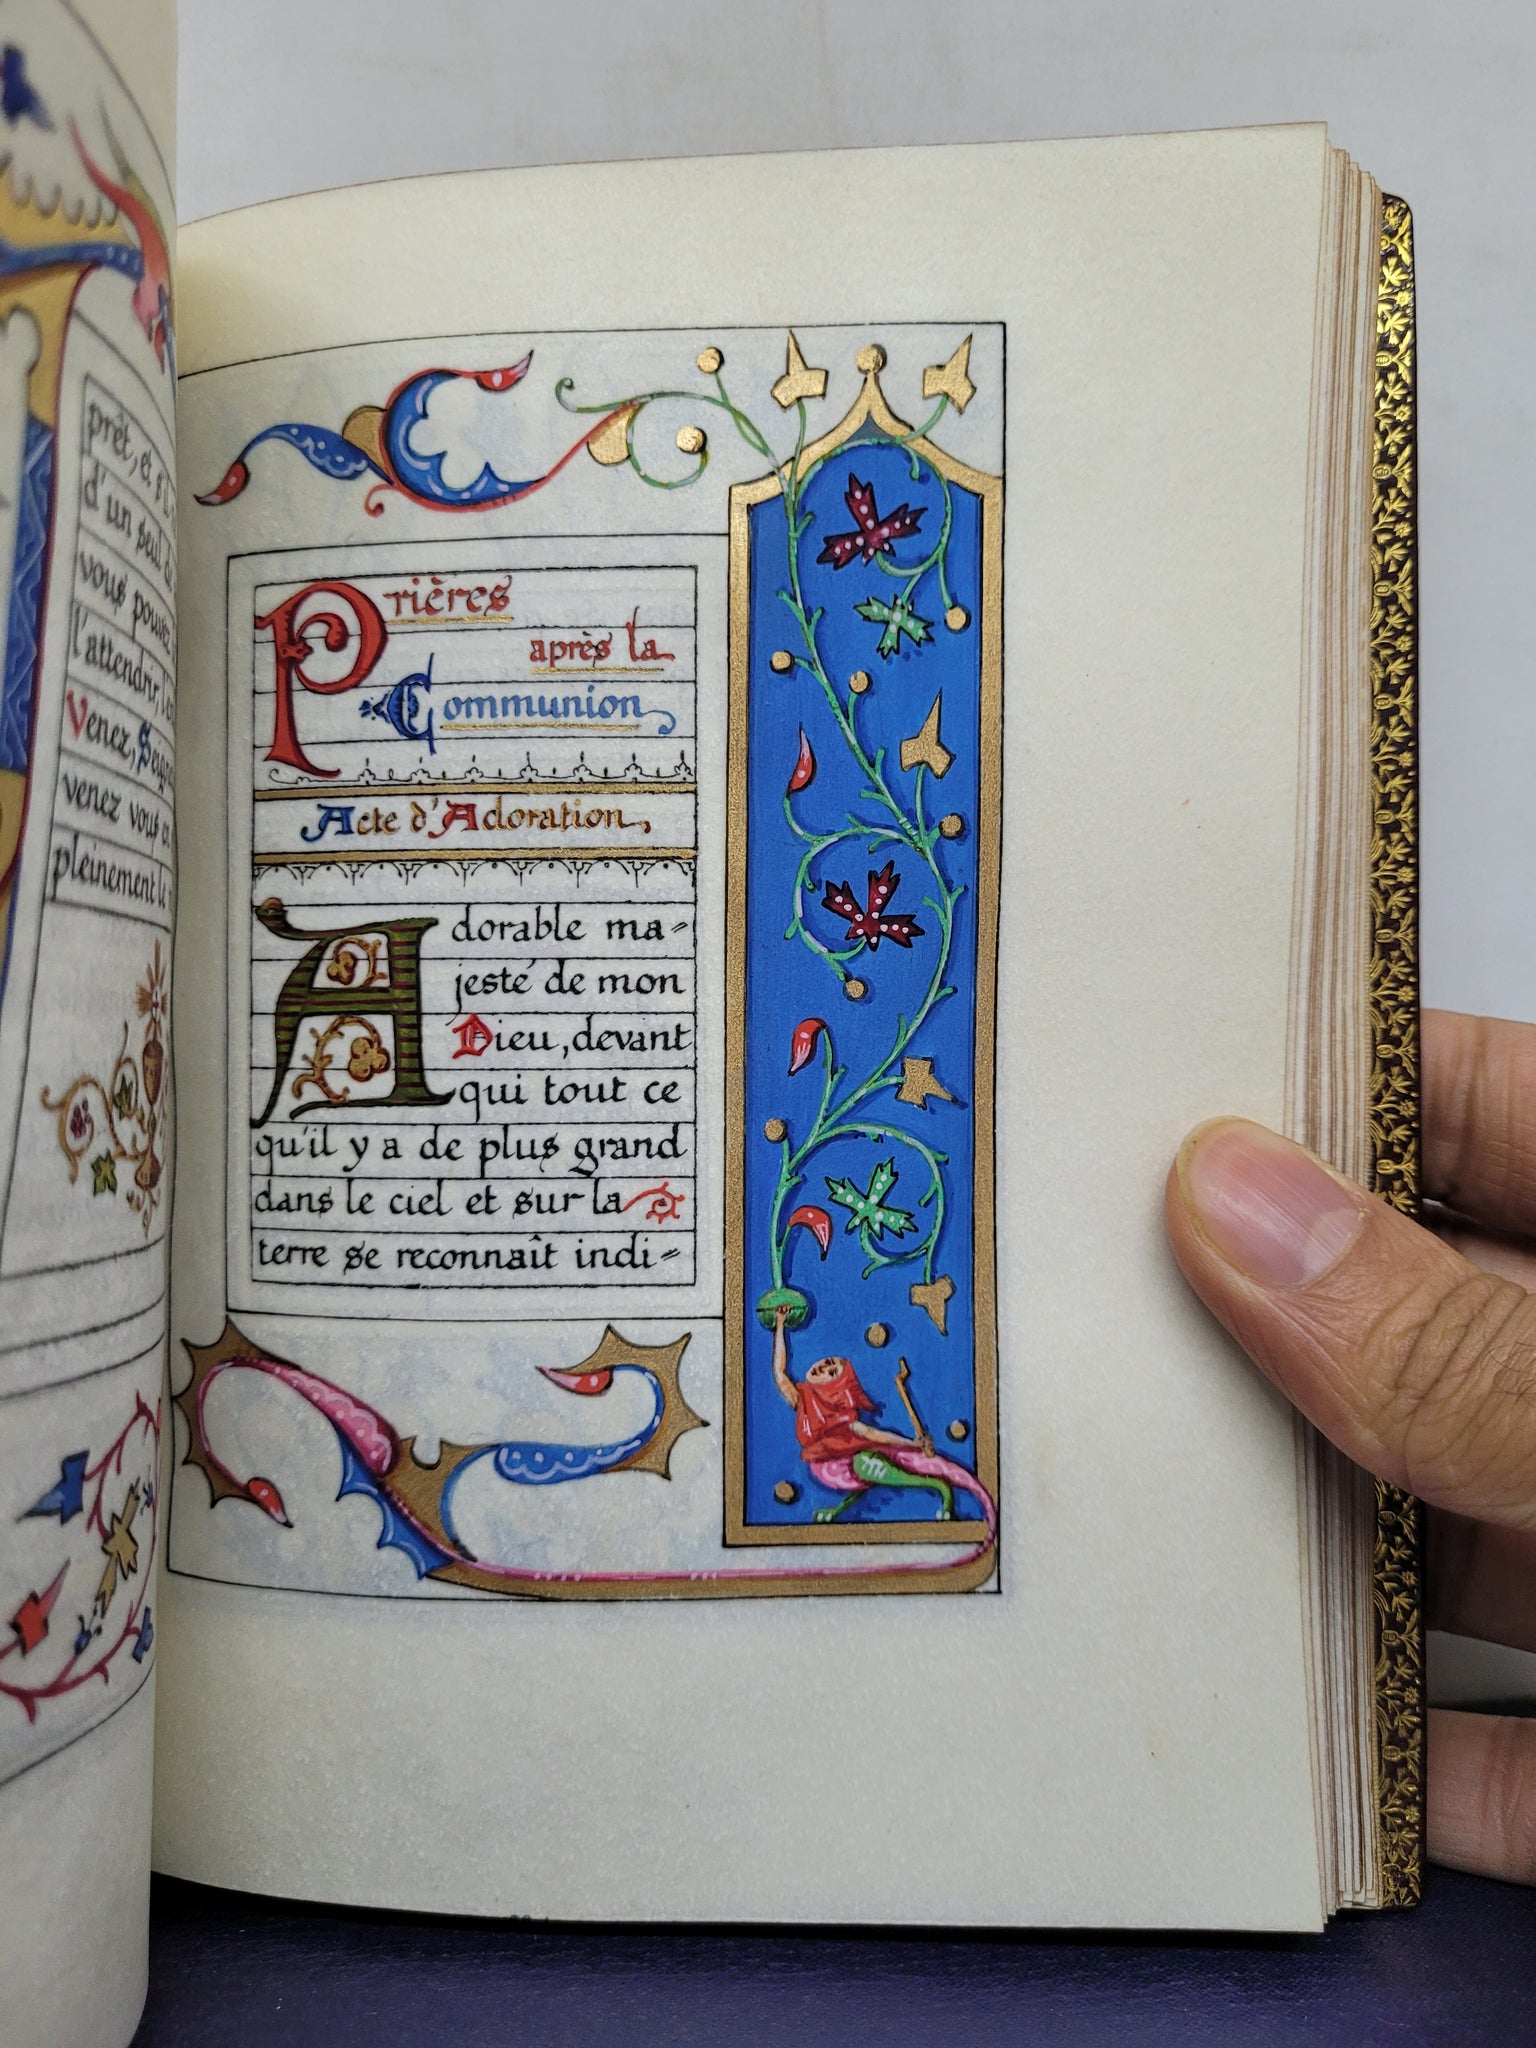 prêt, et s'il
d'un seul
vous pouvez
l'attendrir,
Venez,
venez vous
pleinement le
Prières
après la
Communion
Acte d'Adoration,
Adorable ma=
jesté de mon
Dieu, devant
qui tout ce
qu'il y a de plus grand
dans le ciel et sur la
terre se reconnaît indi=